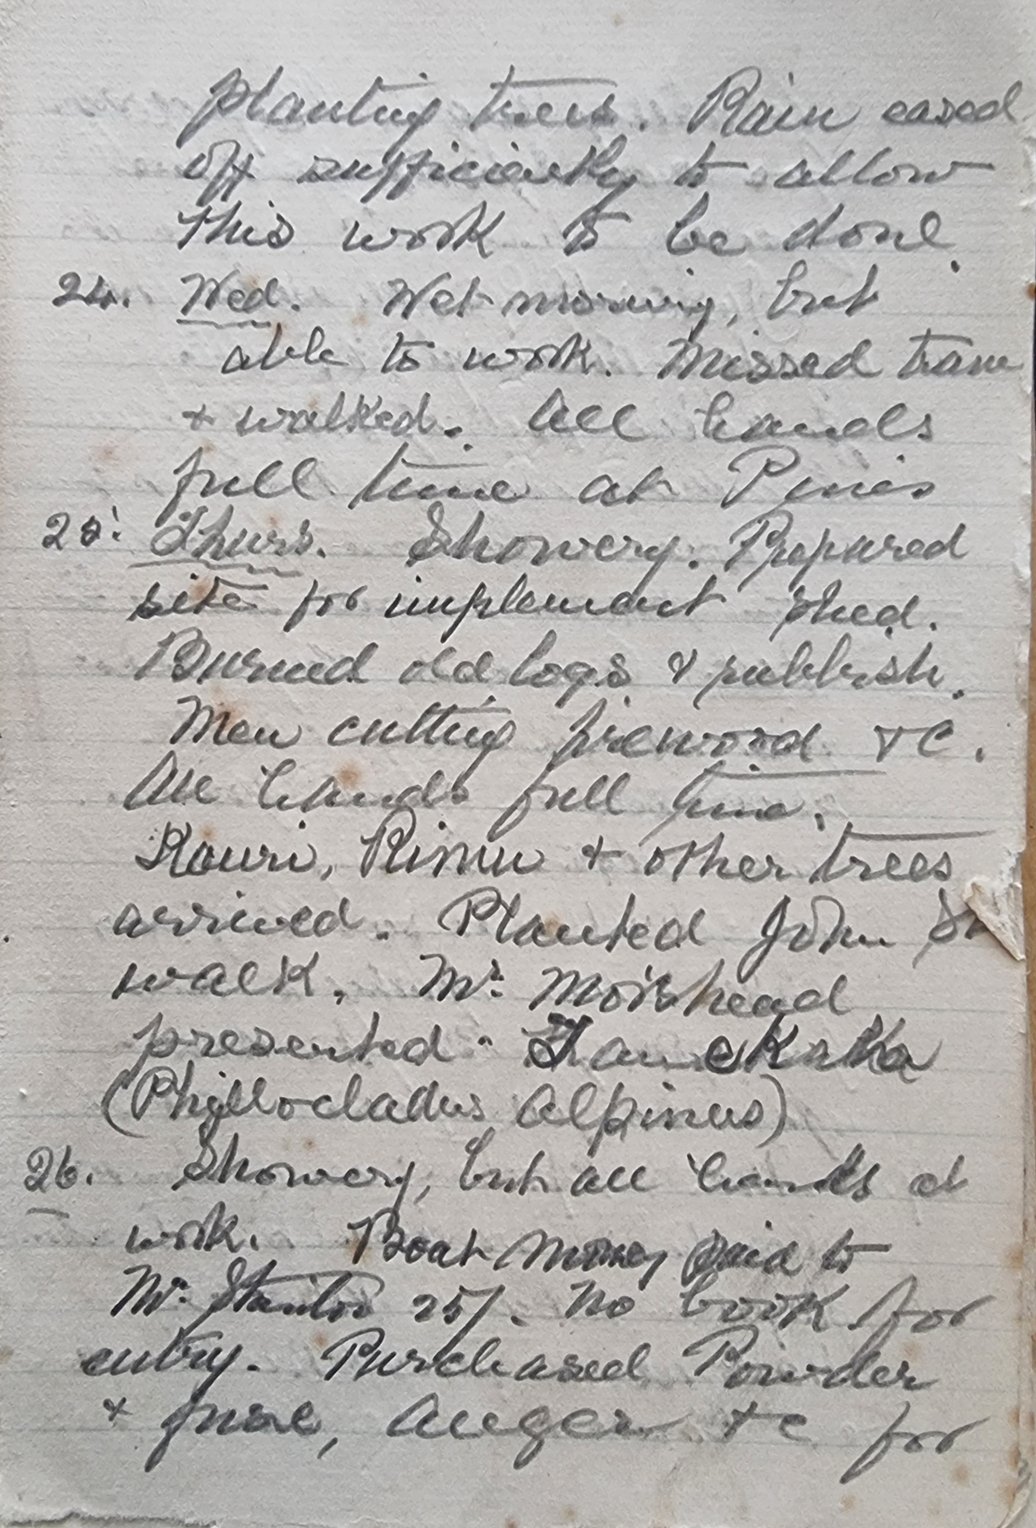 planting trees. Rain eased
off sufficiently to allow
this work to be done.
24. Wed. Wet morning, but
able to work. Missed tram
+ walked. All hands
full time at Pines
25. Thurs. Showery. Prepared
site for implement shed.
Burned old logs & rubbish.
Men cutting firewood &c.
All hands full time.
Kauri, Rimu + other trees
arrived. Planted John
walk. Mr. Moishead
presented
(Phyllocladus Alpinus)
26. Showery, but all hands at
work. Boat Money paid to
Mr. 25/. No book for
entry. Purchased Powder
+ fuse, Auger &c for